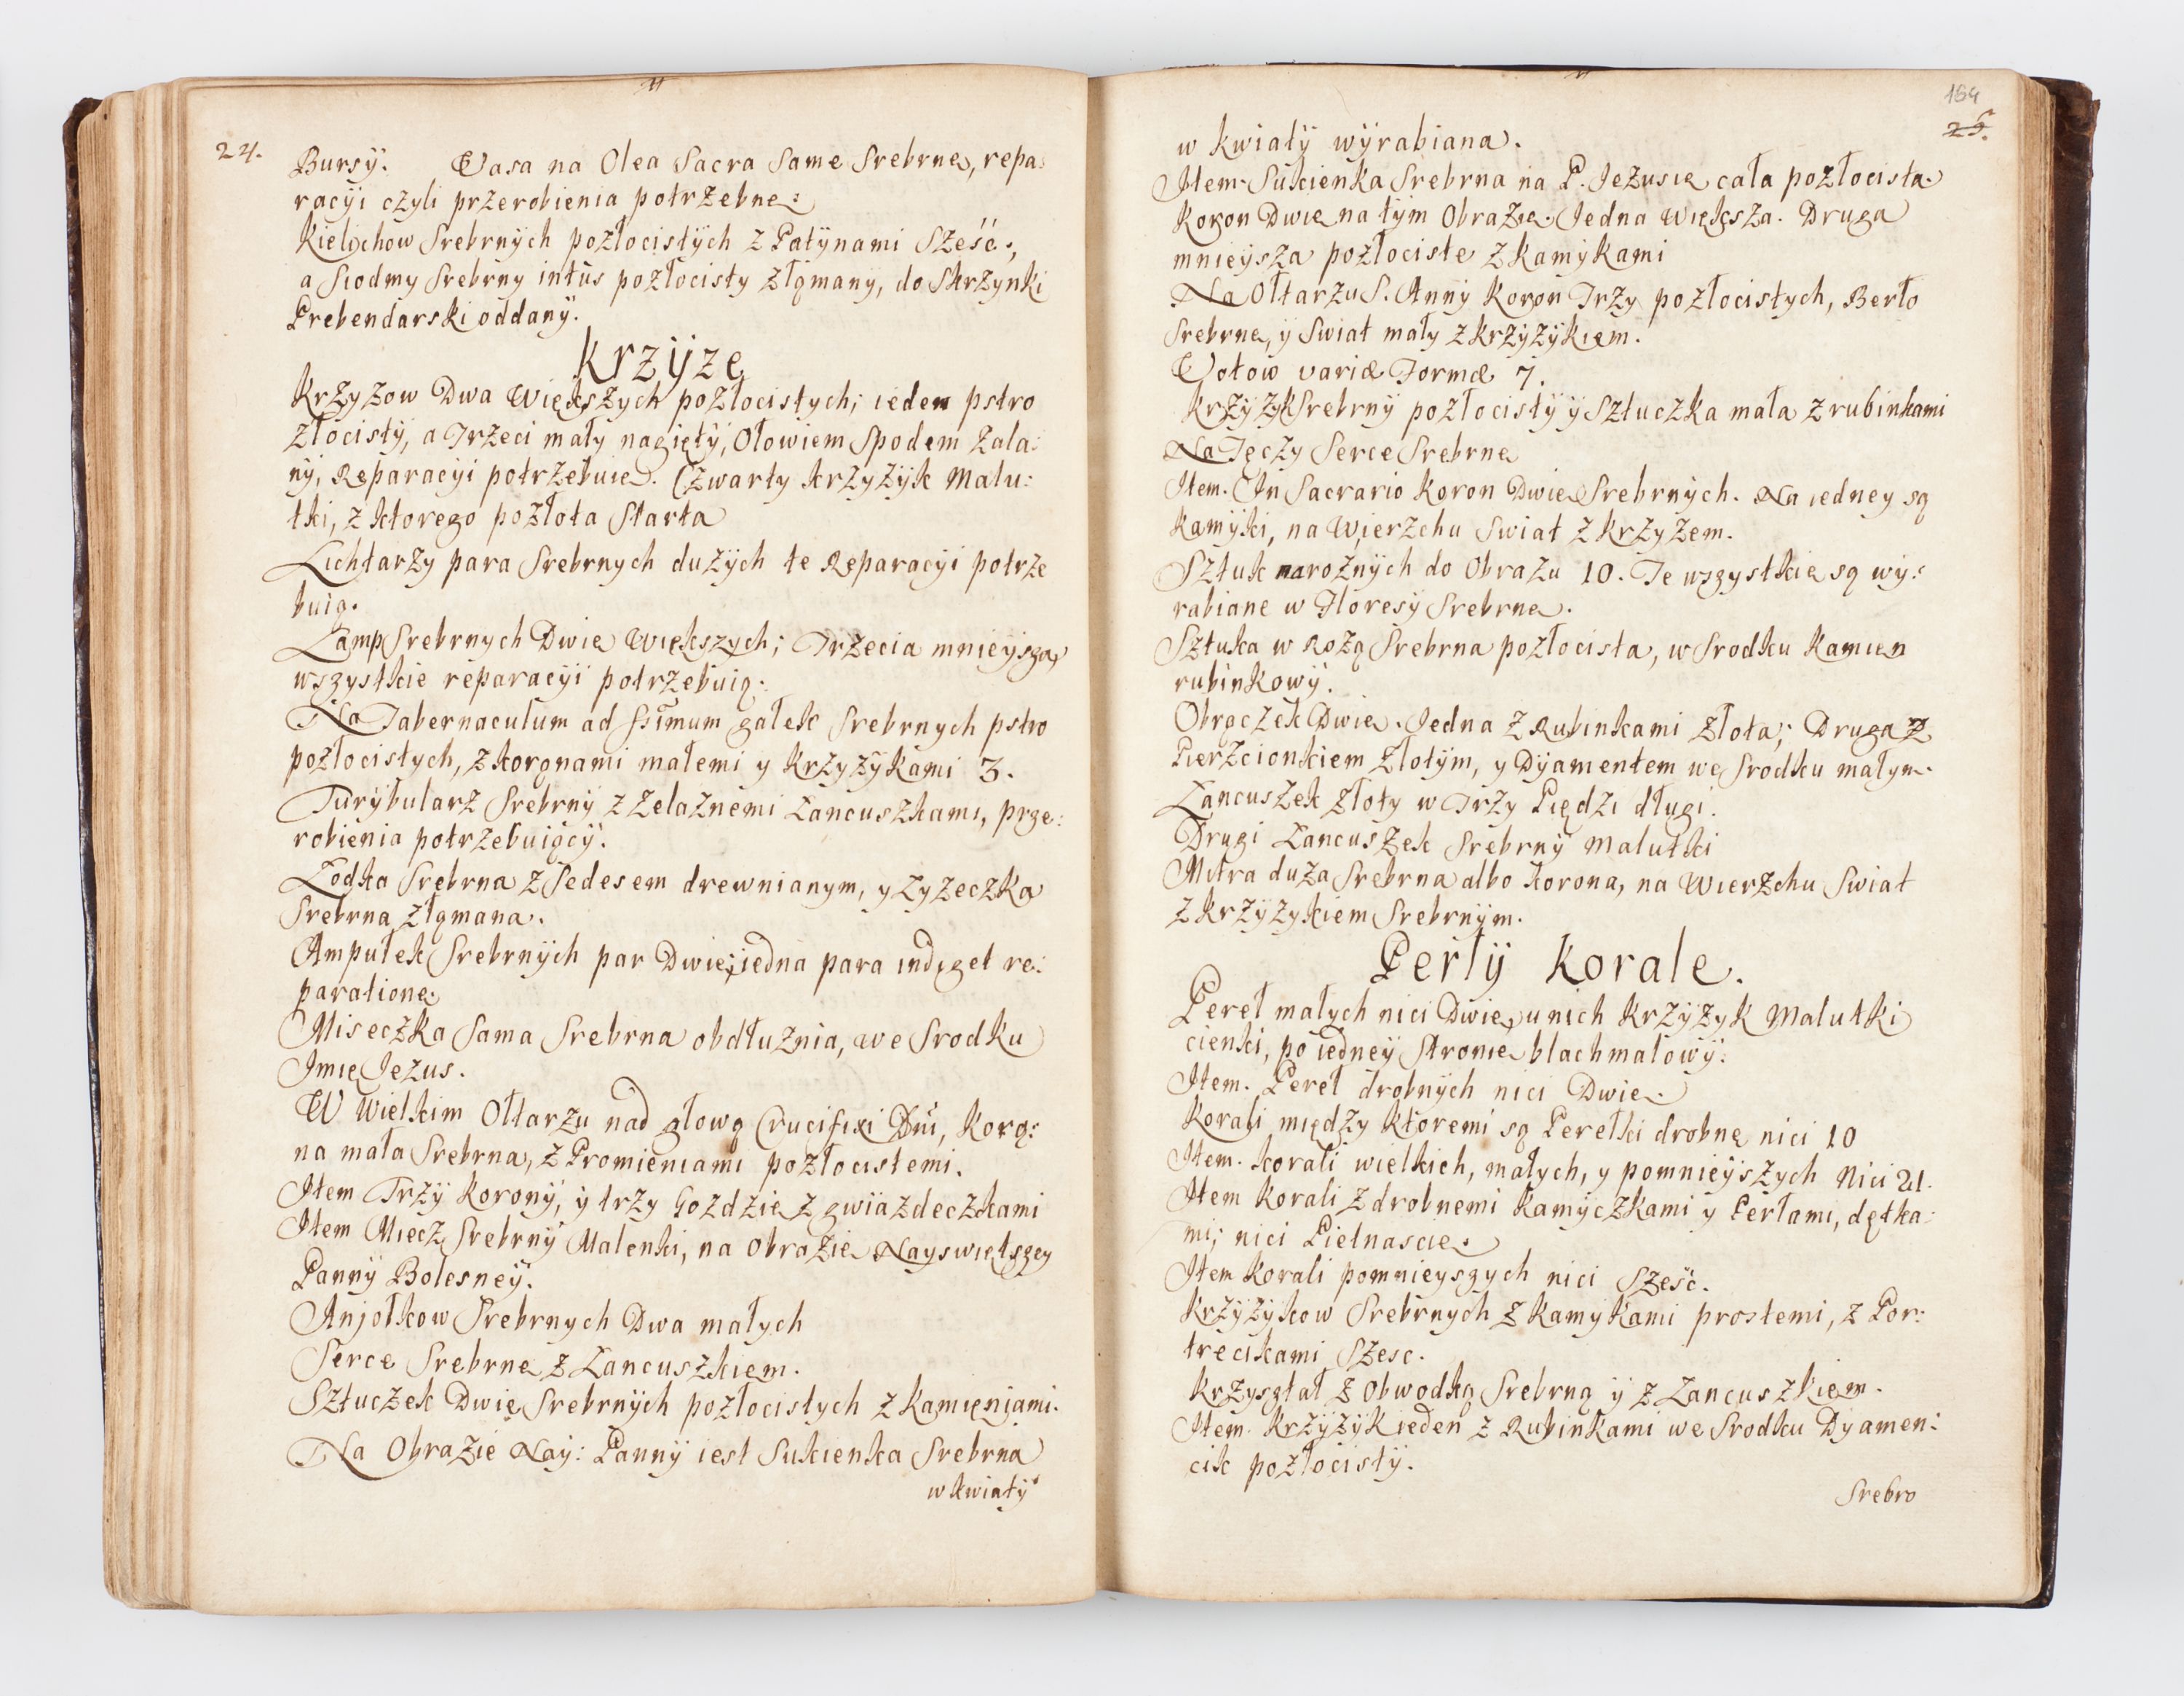 24.
Bursÿ. Vasa na Olea Sacra Same Srebrne, repa:
racÿi czyli przerobienia potrzebne:
Kielichow Srebrnÿch pozłocistÿch z Patÿnami Sześć.,
a Siodmy Srebrny intus pozłocisty złąmany, do Skrzynki
Prebendarski oddanÿ.
Krzÿże
Krzyzow Dwa Większych pozłocistych; ieden pstro
złocistÿ, a Trzeci mały nagiętÿ, Ołowiem Spodem zala:
nÿ, Reparacÿi potrzebuie. Czwarty krzyżÿk Malu:
tki, z ktorego pozłota Starta
Lichtarzy para Srebrnych dużÿch te Reparacÿi potrze
buią.
Lamp Srebrnych Dwie Większych; Trzecia mnieÿsza,
wszystkie reparacÿi potrzebuią.
Na Tabernaculum ad Ssimum gałek Srebrnych pstro
pozłocistych, z koronami małemi y krzyżÿkami 3.
Turÿbularz Srebrnÿ z Zelaznemi Łancuszkami, prze:
robienia potrzebuiącÿ.
Łodka Srebrna z Sedesem drewnianym, y Łyżeczka
Srebrna złąmana.
Ampułek Srebrnÿch par Dwie, iedna para indiget re:
paratione.
Miseczka Sama Srebrna obdłużnia, we Srodku
Imię Jezus.
W Wielkim Ołtarzu nad głową Crucifixi Dni, Koro:
na mała Srebrna, z Promieniami pozłocistemi.
Item Trzÿ Koronÿ, ÿ trzy Gozdzie z gwiazdeczkami
Item Miecz Srebrnÿ Malenki, na Obrazie Nayswiętszey
Pannÿ Bolesneÿ.
Anjołkow Srebrnych Dwa małych
Serce Srebrne z Łancuszkiem.
Sztuczek Dwie Srebrnÿch pozłocistych z kamieniami.
Na Obrazie Naÿ: Pannÿ iest Sukienka Srebrna
w kwiatÿ
184
25.
w kwiatÿ wÿrabiana.
Item Sukienka Srebrna na P. Jezusie cała pozłocista.
Koron Dwie na tÿm Obrazie. Jedna Większa. Druga
mnieÿsza pozłociste z kamÿkami
Na Ołtarzu S. Annÿ Koron Trzy pozłocistych, Berło
Srebrne, ÿ Swiat mały z krzÿżÿkiem.
Votow variæ Formæ 7.
Krzÿżÿk Srebrnÿ pozłocistÿ ÿ Sztuczka mała z rubinkami
Na Tęczy Serce Srebrne
Item. In Sacrario Koron Dwie Srebrnÿch. Na iedney są
Kamÿki, na Wierzchu Swiat z krzyżem.
Sztuk narożnÿch do Obrazu 10. Te wszystkie są wÿ:
rabiane w Floresÿ Srebrne.
Sztuka w Rożą Srebrna pozłocista, w Srodku Kamien
rubinkowÿ.
Obrączek Dwie. Jedna z Rubinkami złota; Druga z
Pierzcionkiem złotÿm, y Dÿamentem we Srodku małym.
Łancuszek złoty w Trzy Piędzi długi.
Drugi Łancuszek Srebrnÿ Malutki
Mitra duża Srebrna albo Korona, na Wierzchu Swiat
z krzÿżykiem Srebrnÿm.
Perłÿ Korale.
Pereł małych nici Dwie, u nich Krzÿżyk Malutki
cienki, po iedneÿ Stronie blachmalowÿ:
Item. Pereł drobnÿch nici Dwie.
Korali między ktoremi są Perełki drobne nici 10
Item. korali wielkich, małych, y pomnieÿszych Nici 21.
Item Korali z drobnemi Kamÿczkami y Perłami, dętka:
mi; nici Pietnascie.
Item Korali pomnieyszych nici Sześć.
Krzÿżÿkow Srebrnych z kamÿkami prostemi, z Por:
trecikami Szesc.
Krzyształ z Obwodką Srebrną ÿ z Łancuszkiem.
Item. Krzÿżÿk ieden z Rubinkami we Srodku Dyamen:
cik pozłocistÿ.
Srebro